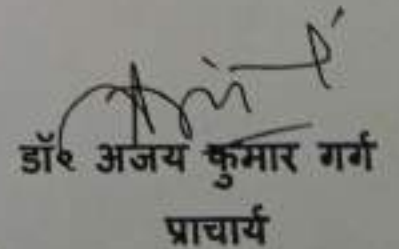 डॉ० अजय कुमार गर्ग
प्राचार्य